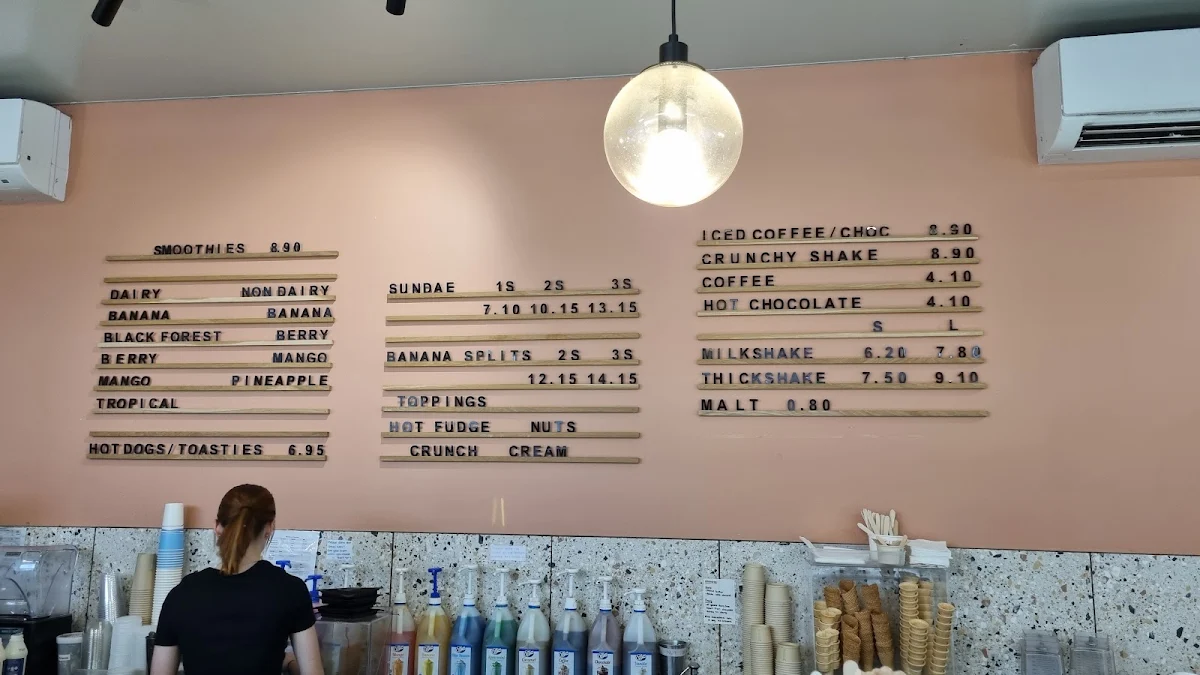 SMOOTHIES 8.90
DAIRY NON DAIRY
BANANA BANANA
BLACK FOREST BERRY
BERRY MANGO
MANGO PINEAPPLE
TROPICAL
HOTDOGS/TOASTIES 6.95
SUNDAE 1S 2S 3S
7.10 10.15 13.15
BANANA SPLITS 2S 3S
12.15 14.15
TOPPINGS
HOT FUDGE NUTS
CRUNCH CREAM
ICED COFFEE/CHOC 8.60
CRUNCHY SHAKE 8.90
COFFEE 4.10
HOT CHOCOLATE 4.10
S L
MILKSHAKE 6.20 7.80
THICKSHAKE 7.50 9.10
MALT 0.80